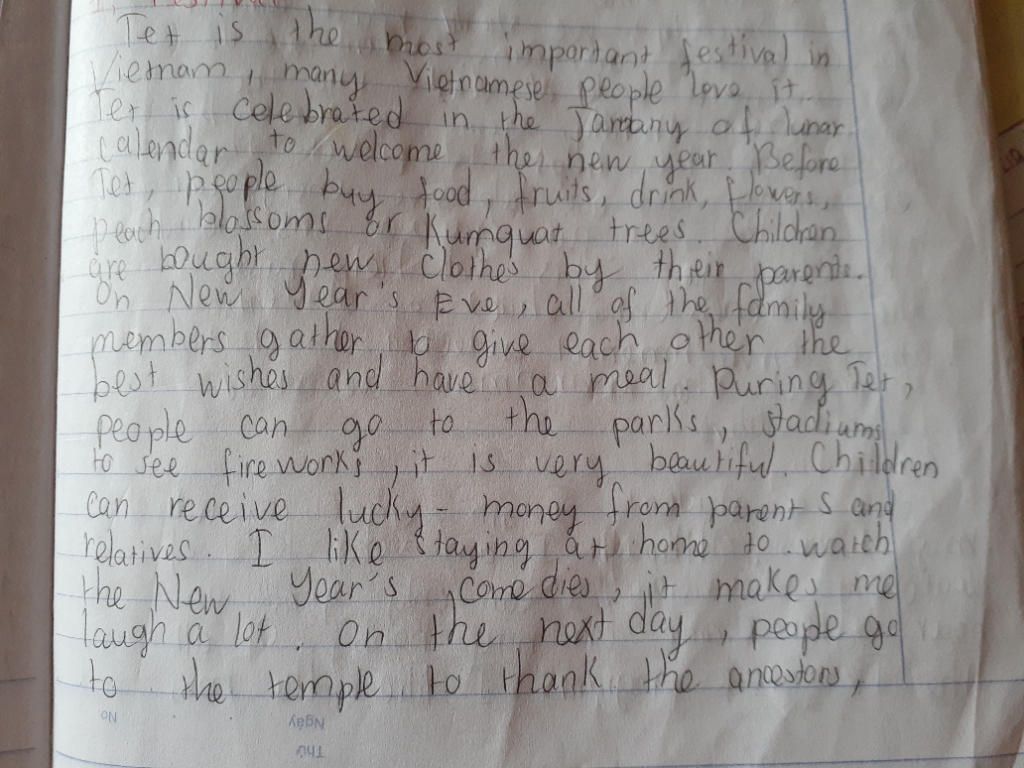 Tet is the most important festival in
Vietnam, many Vietnamese people love it.
Tet is celebrated in the of lunar
calendar to welcome the new year. Before
Tet, people buy food, fruits, drink, flowers,
peach blossoms or Kumquat trees. Children
are bought new clothes by their parents.
On New Year's Eve, all of the family
members gather to give each other the
best wishes and have a meal. During Tet,
people can go to the parks, stadiums
to see fireworks, it is very beautiful. Children
can receive lucky-money from parents and
relatives. I like staying at home to watch
the New Year's comedies, it makes me
laugh a lot. On the next day, people go
to the temple to thank the ancestors,
No Ngày
Thứ